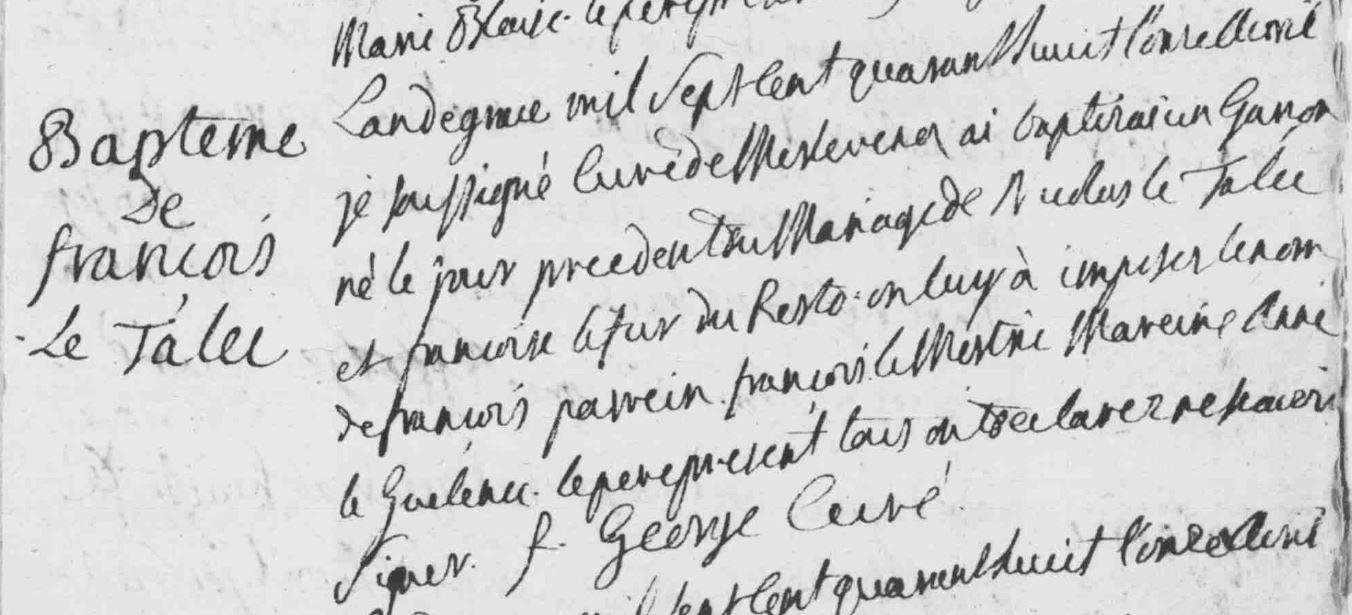 Bapteme
De
françois
Le Talec
Marie Blaise. le pere present
L'an de grace mil Sept Cent quarant huit l'onze Avril
je soussigné Curé de Merlevenez ai baptisai un Garson
né le jour precedent du Mariage de Nicolas le Talec
et francoise le fur du Resto. on luy à imposer le nom
de francois parrein. françois le Mestric Mareine Anne
le Guelenec. le pere present tous ont declarer ne scavoir
Signer. f. George Curé
mil Sept Cent quarant huit l'onze Avril